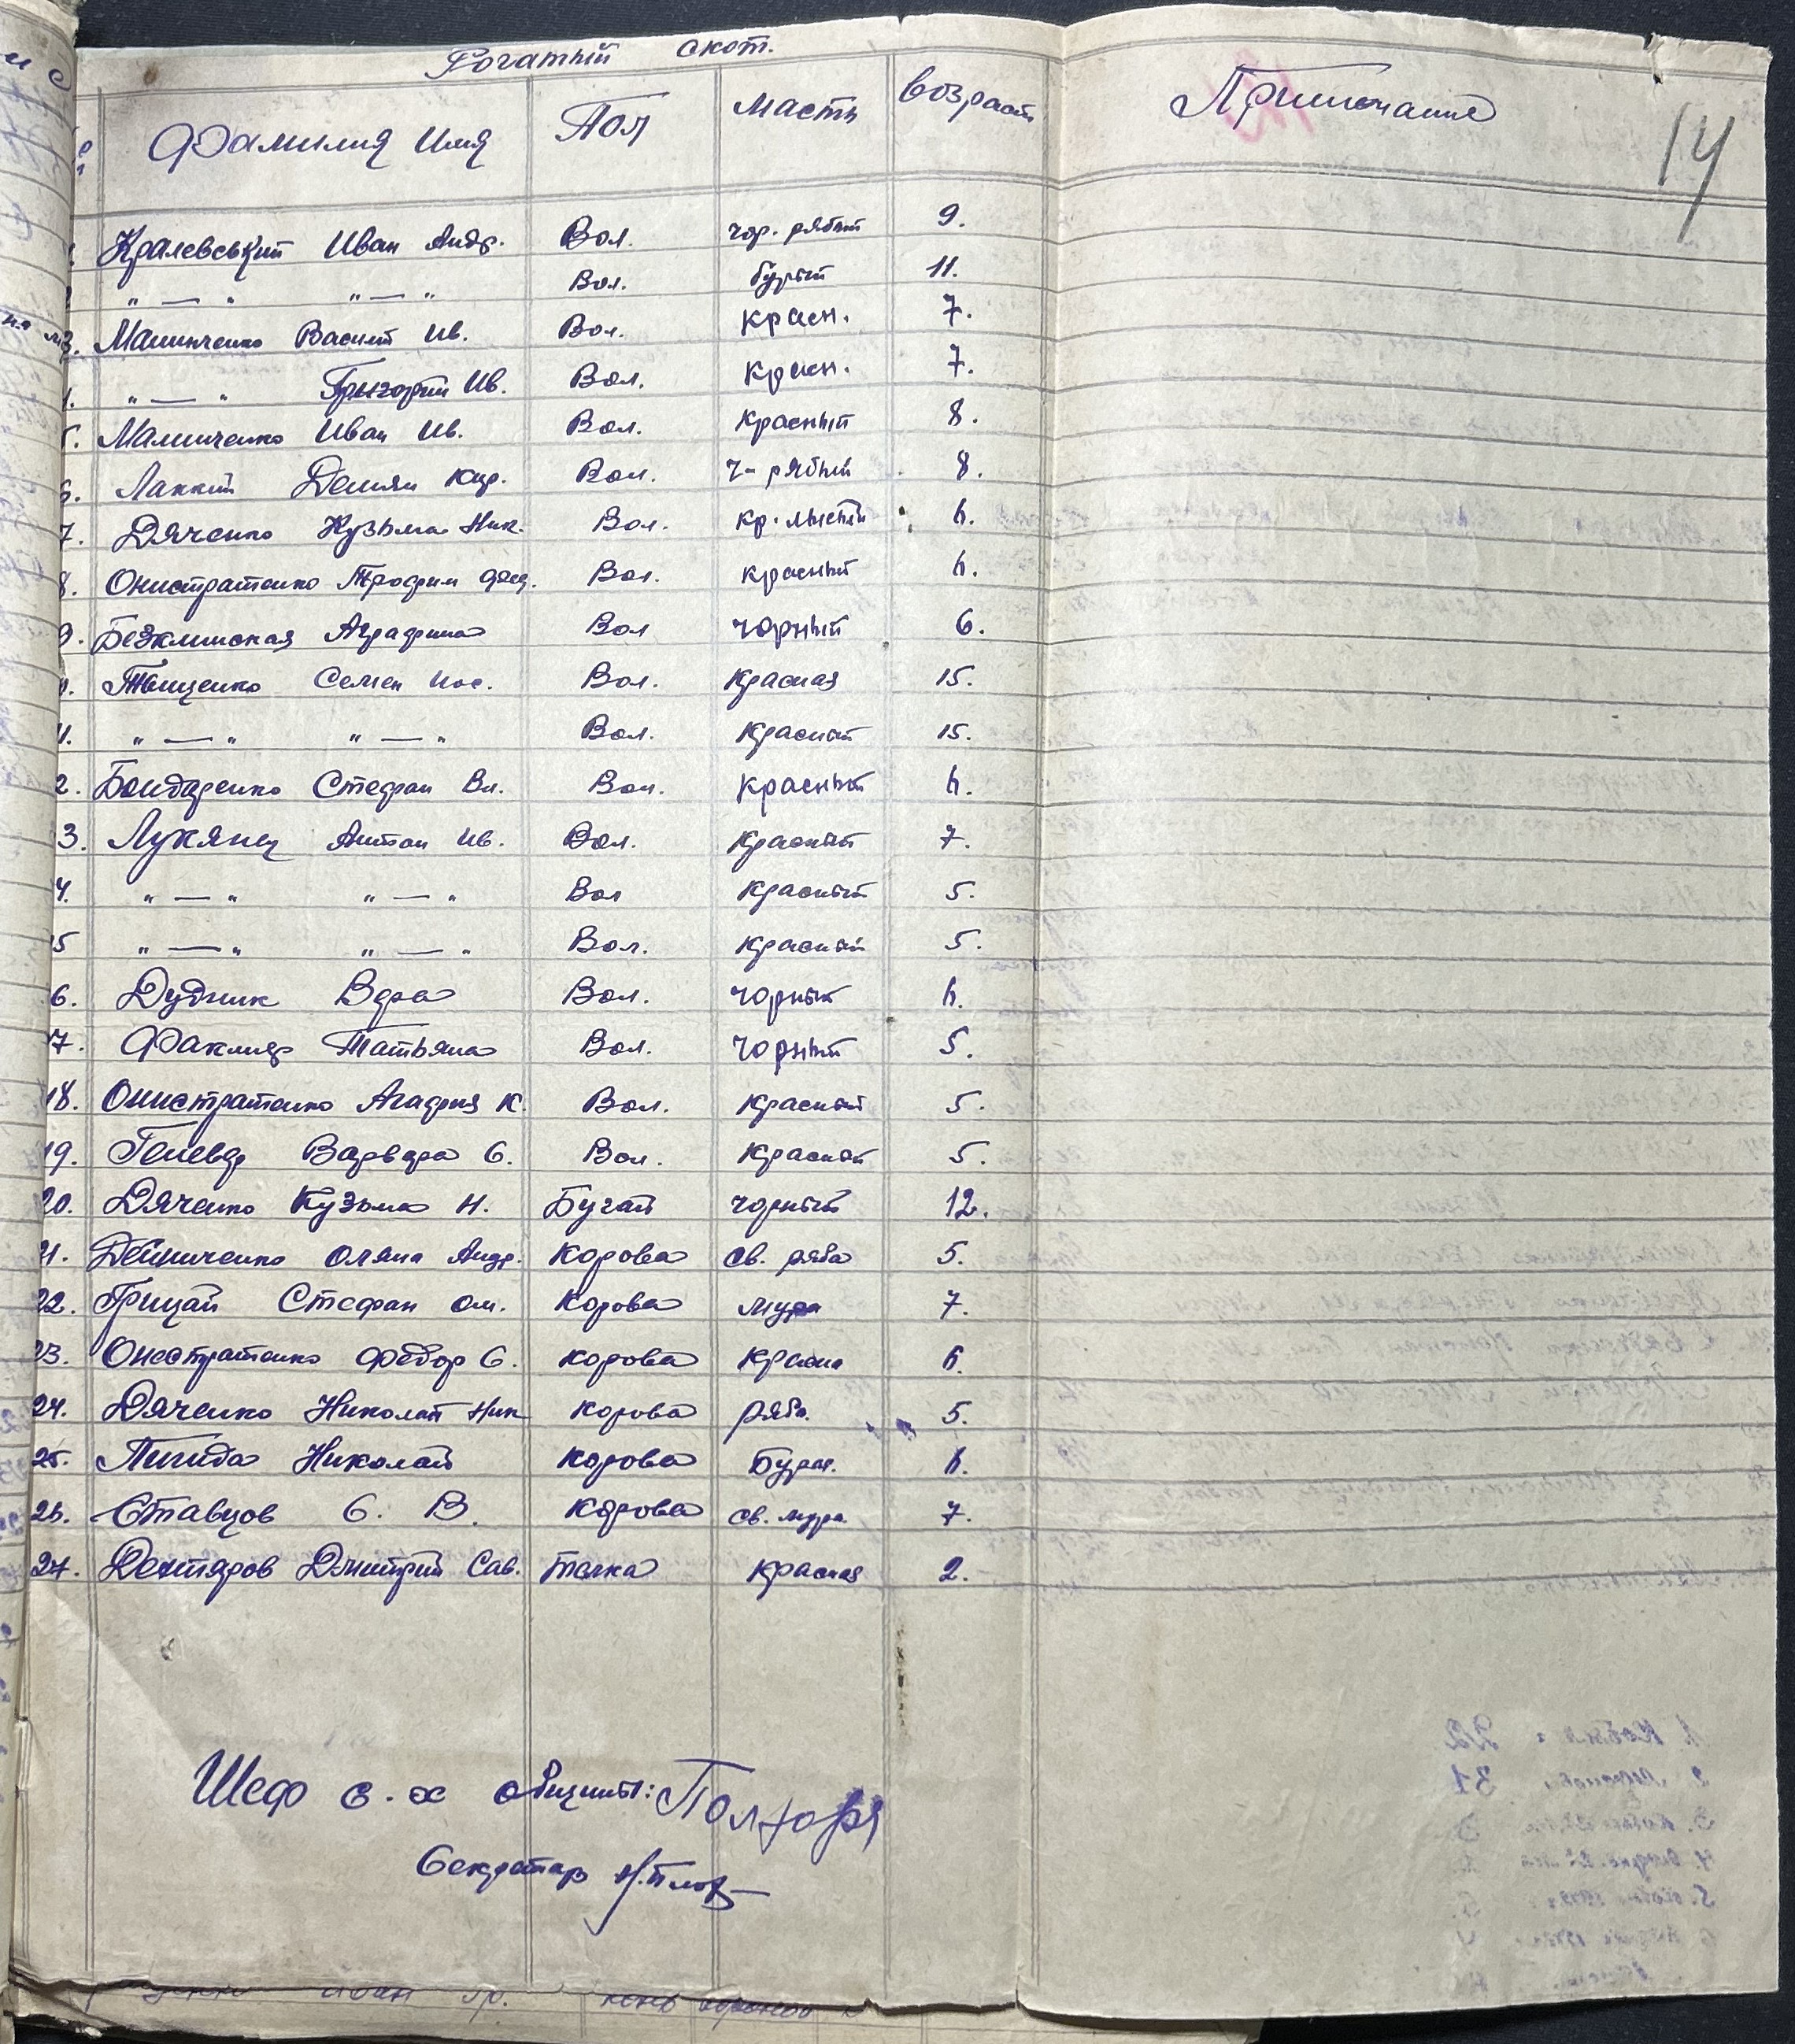 Рогатый скот.
Фамилия Имя Пол масть возраст Примечание
14
Кралевський Иван Андр. Вол. чор. рябый 9.
" — " " — " Вол. бурый 11.
3. Малинченко Василий Ив. Вол. красн. 7.
" — " Григорий Ив. Вол. красн. 7.
5. Малинченко Иван Ив. Вол. красный 8.
6. Лаккий Демян Кир. Вол. ч-рябый 8.
7. Дяченко Кузьма Ник. Вол. кр. лысый 6.
8. Онистратенко Трофим Вол. красный 6.
9. Безклинская Аграфина Вол чорный 6.
Тищенко Семен Иос. Вол. красная 15.
11. " — " " — " Вол. красный 15.
2. Бондаренко Стефан Вл. Вол. красный 6.
3. Лукянец Антон Ив. Вол. красный 7.
4. " — " " — " Вол красный 5.
15 " — " " — " Вол. красный 5.
6. Дудник Вера Вол. чорный 6.
17. Факлиер Татьяна Вол. чорный 5.
18. Онистратенко Агафия К. Вол. красный 5.
19. Гелевер Варвара С. Вол. красный 5.
20. Дяченко Кузьма Н. Бугай чорный 12.
21. Дейниченко Оляна Андр. корова св. ряба 5.
22. Грицай Стефан Ом. корова мура 7.
23. Онестратенко Федор С. корова красна 6
24. Дяченко Николай Ник корова ряба. 5.
25. Линда Николай корова Бурая. 6.
26. Ставцов С. В. корова св. мура 7.
27. Дехтяров Дмитрий Сав. телка красная 2.
Шеф с.х общины:
Секретар